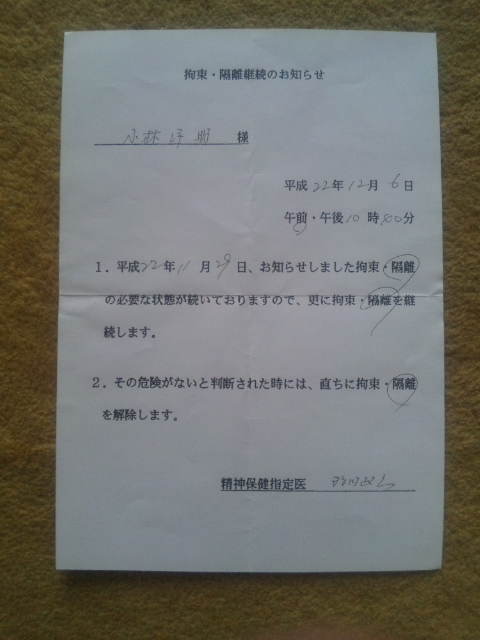 拘束・隔離継続のお知らせ
小林 様
平成22年12月6日
午前・午後10時00分
1.平成22年11月29日、お知らせしました拘束・隔離
の必要な状態が続いておりますので、更に拘束・隔離を継
続します。
2.その危険がないと判断された時には、直ちに拘束・隔離
を解除します。
精神保健指定医